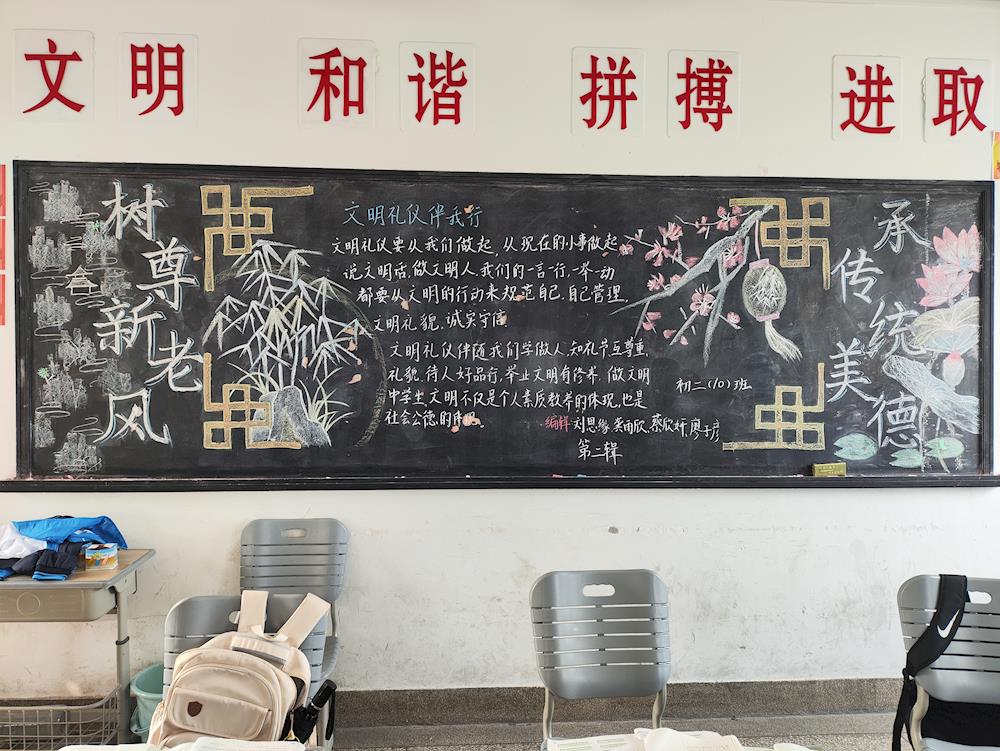 文明 和谐 拼搏 进取
树尊新老风
承传统美德
文明礼仪伴我行
文明礼仪要从我们做起,从现在的小事做起
说文明话,做文明人,我们的一言一行,一举一动
都要从文明的行动来规范自己,自己管理,
文明礼貌,诚实守信
文明礼仪伴随我们学做人,知礼节互尊重,
礼貌待人好品行,举止文明有修养,做文明
中学生文明不仅是个人素质教养的体现,也是
社会公德的体现
初二(10)班
编辑 刘思缘 龚雨欣 蔡欣妍 廖子彦
第二辑